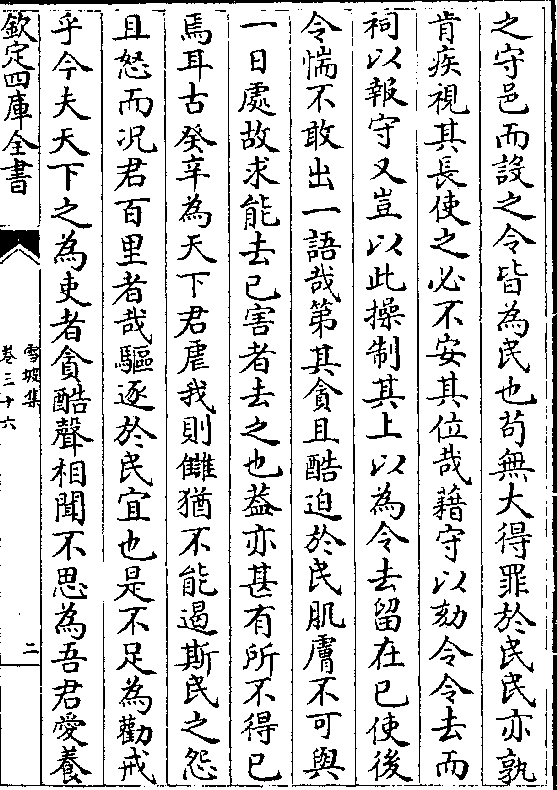 之守邑而設之令皆為民也苟無大得罪於民民亦孰
肯疾視其長使之必不安其位哉藉守以劾令令去而
祠以報守又豈以此操制其上以為令去留在已使後
令惴不敢出一語哉第其貪且酷迫於民肌膚不可與
一日處故求能去已害者去之也葢亦甚有所不得已
焉耳古癸辛為天下君虐我則讎猶不能遏斯民之怨
且怒而况君百里者哉驅逐於民宜也是不足為勸戒
乎今夫天下之為吏者貪酷聲相聞不思為吾君愛養
欽定四庫全書
雪坡集
卷三十六
二